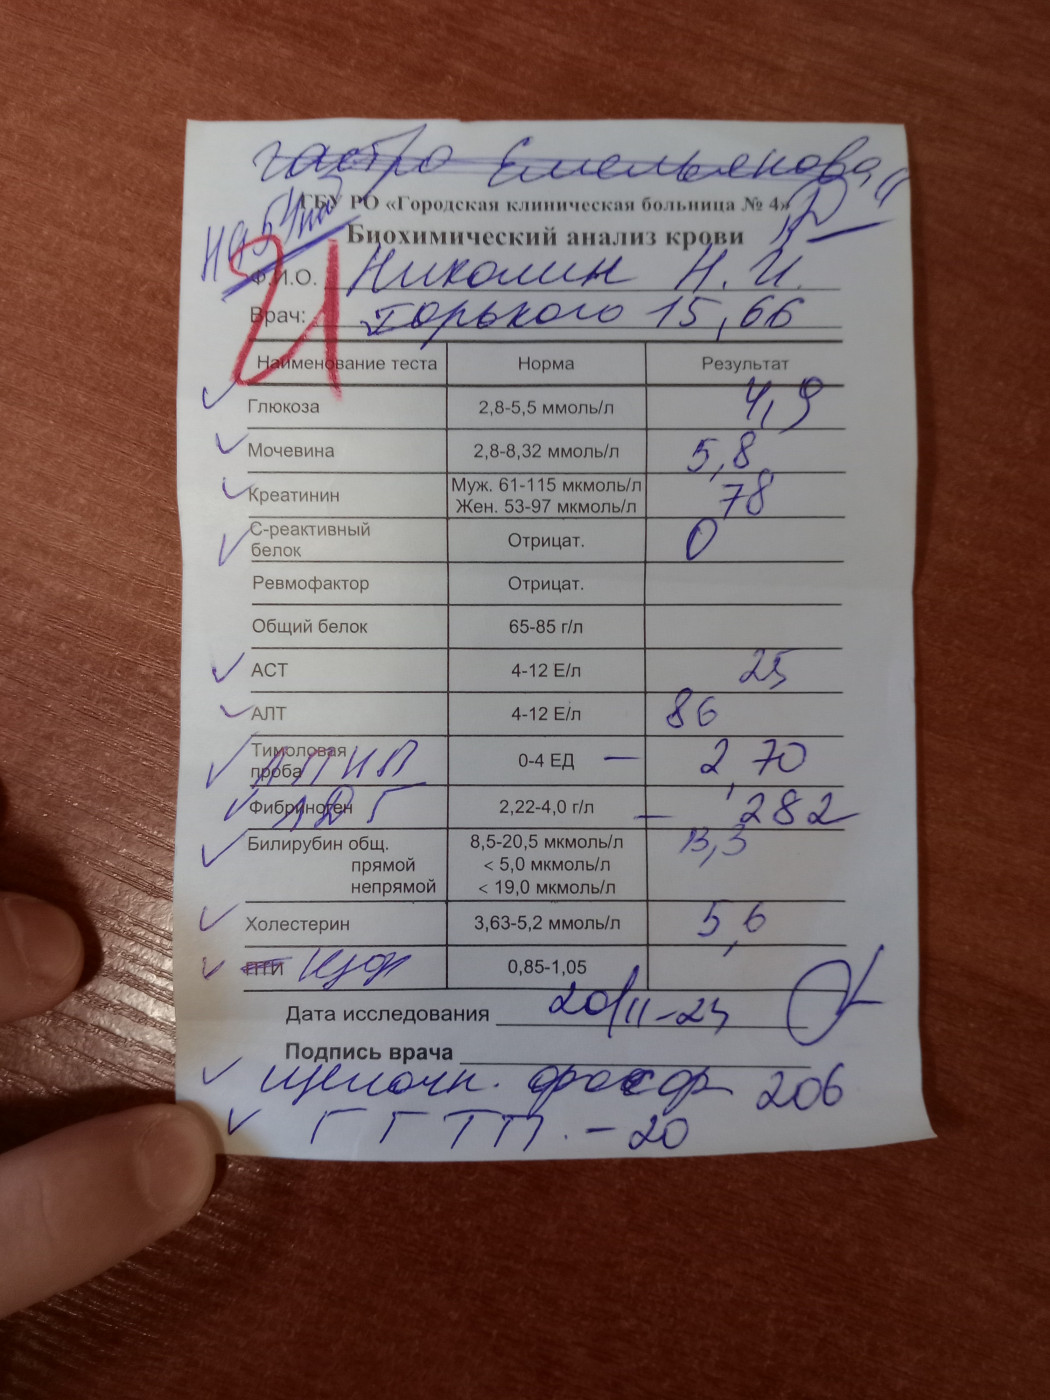 гастро Емельянова
ГБУ РО «Городская клиническая больница № 4»
Биохимический анализ крови
21
Ф.И.О. Николин Н. И.
Врач: Горького 15, 66
Наименование теста Норма Результат
Глюкоза 2,8-5,5 ммоль/л 4,9
Мочевина 2,8-8,32 ммоль/л 5,8
Креатинин Муж. 61-115 мкмоль/л 78
Жен. 53-97 мкмоль/л
С-реактивный
белок Отрицат. 0
Ревмофактор Отрицат.
Общий белок 65-85 г/л
АСТ 4-12 Е/л 25
АЛТ 4-12 Е/л 86
Тимоловая
проба ЛПНП 0-4 ЕД — 2,70
Фибриноген ЛДГ 2,22-4,0 г/л — 282
Билирубин общ. 8,5-20,5 мкмоль/л 13,3
прямой < 5,0 мкмоль/л
непрямой < 19,0 мкмоль/л
Холестерин 3,63-5,2 ммоль/л 5,6
ПТИ 0,85-1,05
Дата исследования 20/11-23
Подпись врача
щелочн. фосф 206
ГГТП. - 20